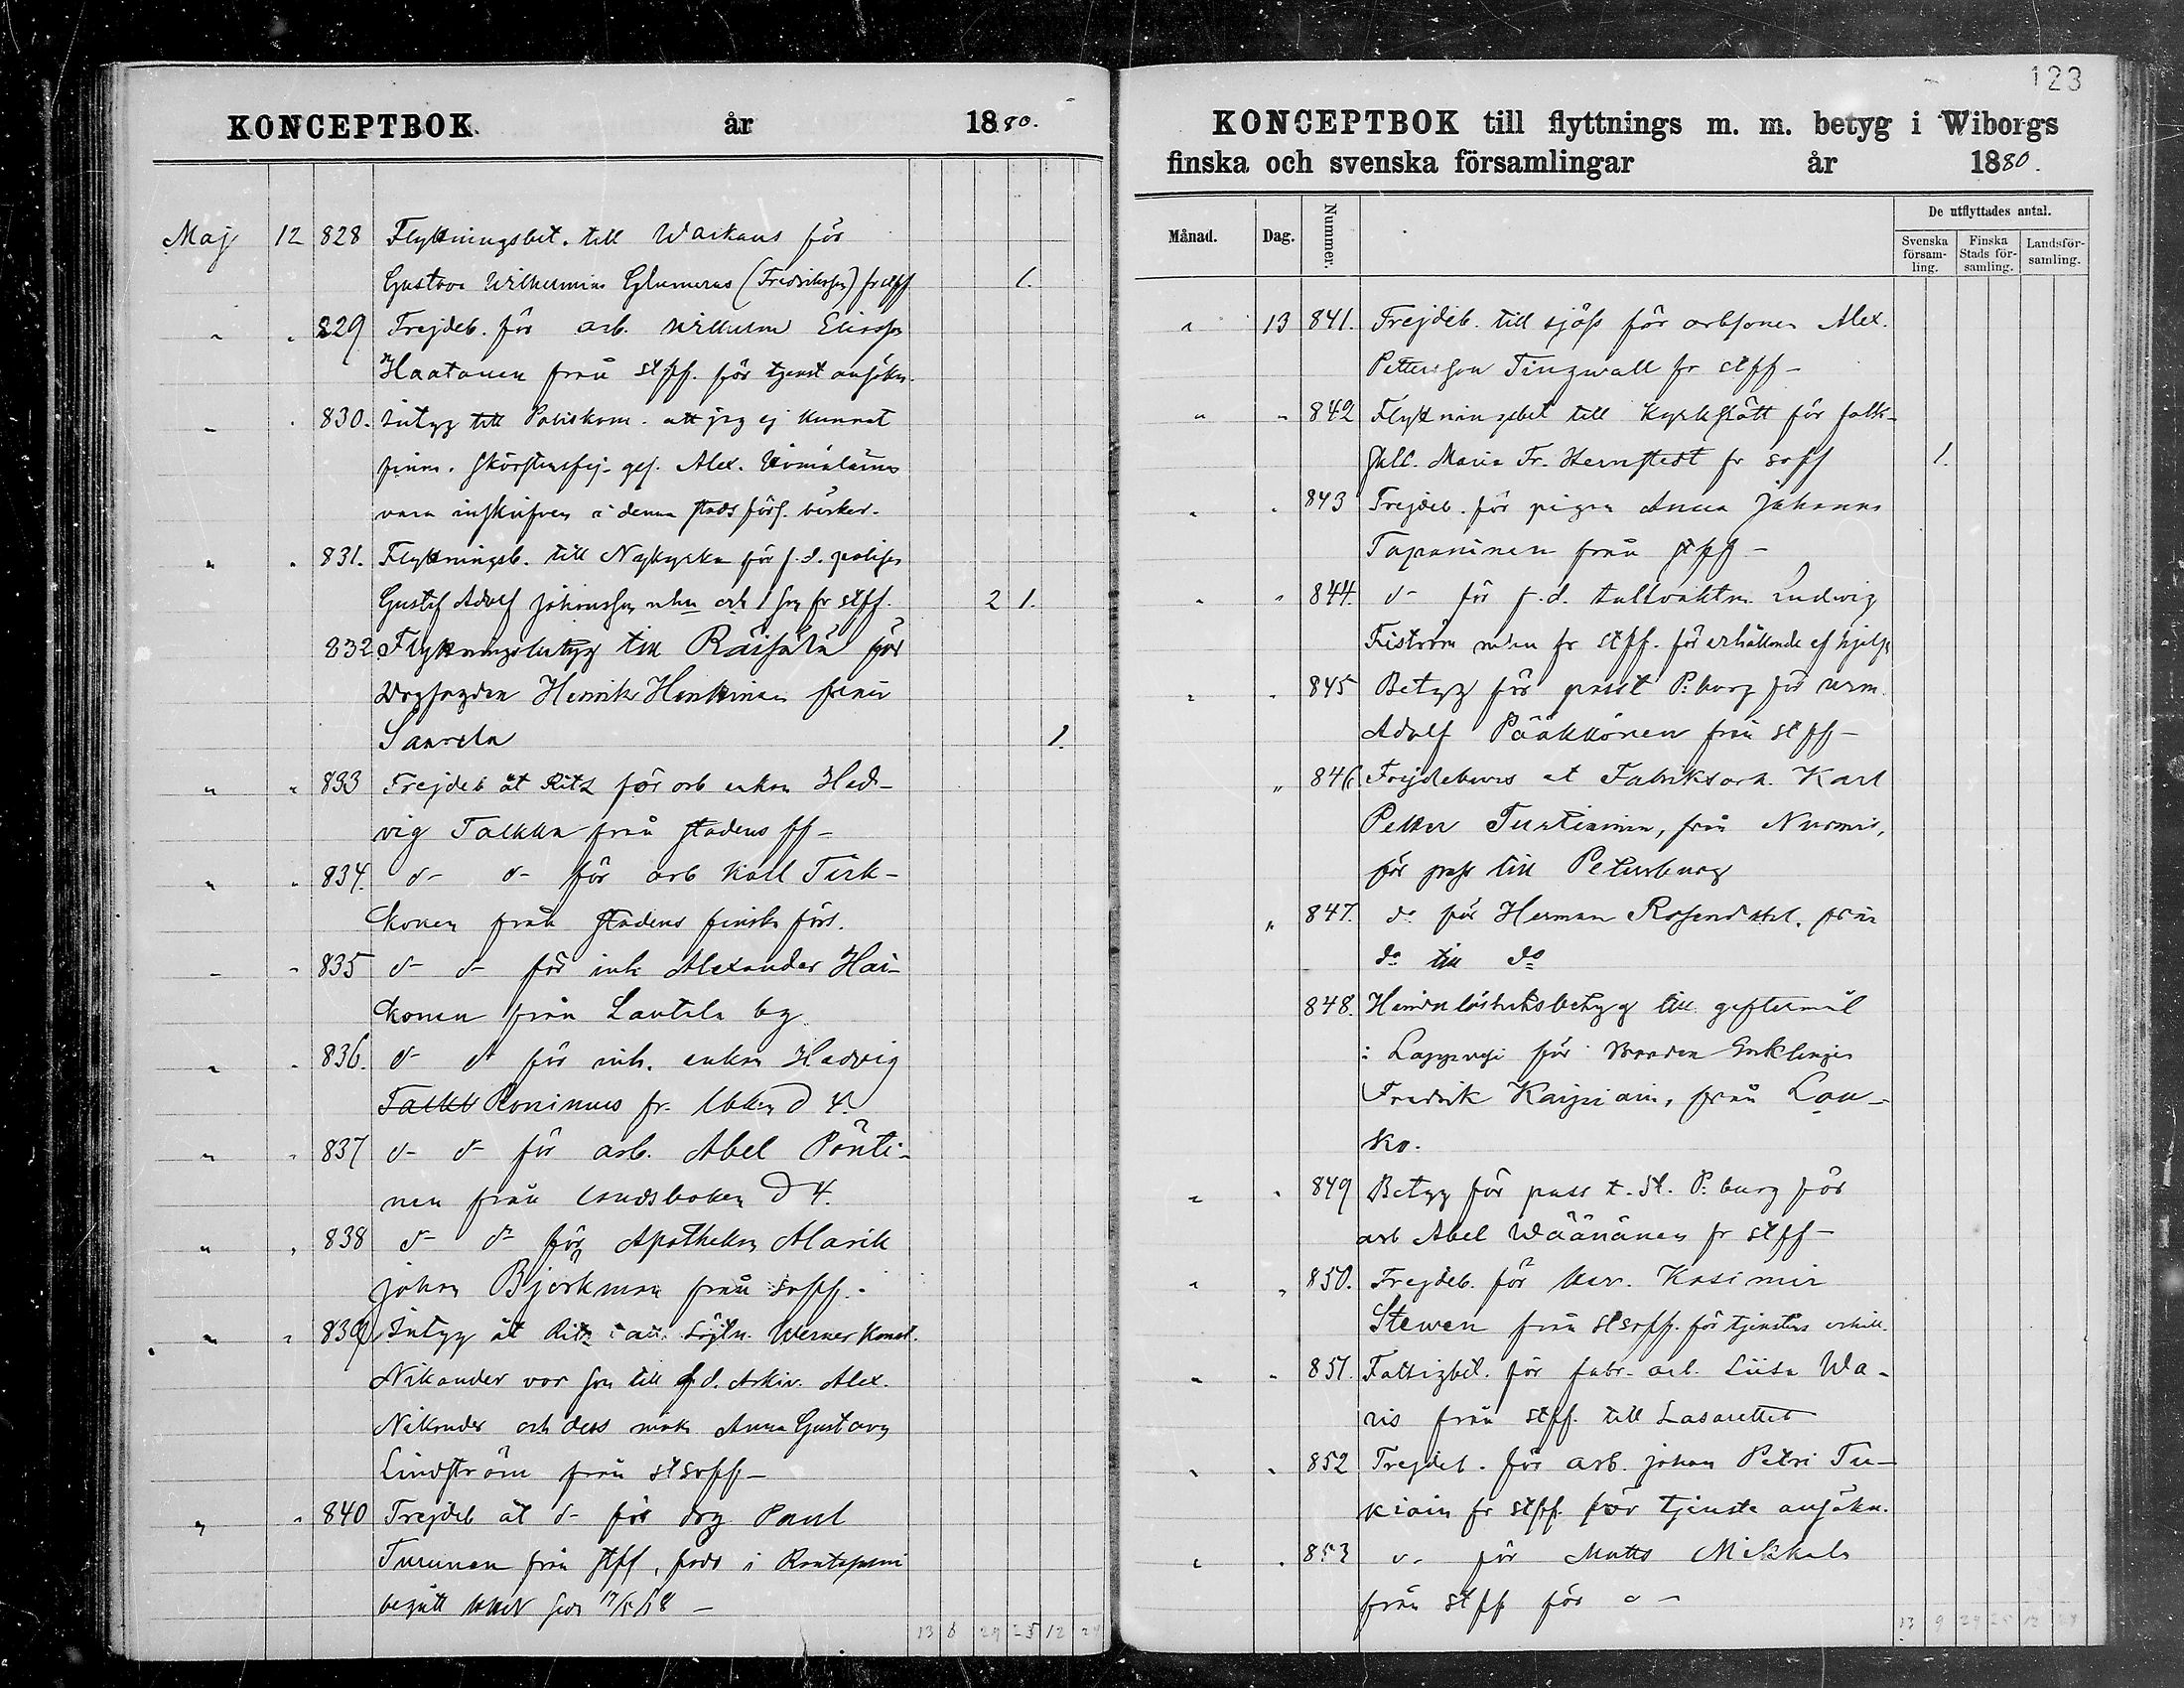 KONCEPTBOK. år 1880.
Maj 12 828 Flyttningsbet. till Warkaus för
Gustava Wilhelmina Glumerus (Fredriksson) fr stff 1.
" " 829 Frejdeb. för arb. Wilhelm Eliass
Haatanen från stff. för tjenst ansökn.
" " 830. Intyg till Poliskam. att jag ej kunnat
finna. Skorstensfej. ges. Alex.
vara inskrifven i denna stads förs. böcker.
" " 831. Flyttningsb. till Nykyrka för f.d. polisen
Gustaf Adolf Johansson och 1 son fr stff. 2 1.
832. Flyttningsbetyg till Räisälä för
Henrik Henkinen från
Saarela 1.
" " 833 Frejdeb åt Ritz för arb enkan Hed-
vig Talkka från stadens ff-
" " 834. d- d- för arb Karl Tirk-
konen från stadens finska förs.
" " 835 d- d- för inh Alexander Hai-
konen från Lautala by.
" " 836. d- d- för inh. enkan Hedvig
Talkk Roninnus fr. lbken D 4.
" " 837 d- d- för arb. Abel Pönti-
nen från landsboken D 4.
" " 838 d- d- för Apothekn Alarik
Johan Björkman från soff.
" " 839 Intyg åt Ritz att Löjtn. Werner Konst.
Nikander var son till f.d. Arkiv. Alex.
Nikander och dess mak Anna Gustava
Lindström från stsoff-
" " 840 Frejdeb åt d- för drg Paul
Turunen från stff, född i Rantasalmi
begått HHN sedn 17/5 18 -
13 8 29 25 12 24
123
KONCEPTBOK till flyttnings m. m. betyg i Wiborgs
finska och svenska församlingar år 1880.
Månad. Dag. Nummer. De utflyttades antal.
Svenska församling. Finska Stads församling. Landsförsamling.
" 13 841. Frejdeb. till sjöss för arbsonen Alex.
Petterson Tingwall fr stff-
" " 842 Flyttningsbet till Kyrkslätt för folk-
skll. Maria Fr. Hernstedt fr soff 1.
" " 843 Frejdeb. för pigan Anna Johanna
Tapaninen från stff-
" " 844. d- för f.d. tullvaktm. Ludvig
Fiström fr stff. för erhållande af hjelp
" " 845 Betyg för passt P:burg för
Adolf Pääkkönen från stff-
" 846. Frejdebevis åt Fabriksarb. Karl
Petter Turtiainen, från Nurmis,
för pass till Petersburg
" 847. do för Herman Rosendahl. från
do till do
848. Hinderlöshetsbetyg till giftermål
i Lappvesi för Enklingen
Fredrik Kaipiain, från Lau-
ko.
" " 849 Betyg för pass t. St. P:burg för
arb Abel Wäänänen fr stff-
" " 850. Frejdeb. för Kasimir
Stewen från stsoff. för tjenstens erhåll.
" " 851. Fattigbet. för fabr. arb. Liisa Wa-
ris från stff. till Lasarettet
" " 852 Frejdeb. för arb. Johan Petri Tu-
kiain fr stff. för tjenste ansökn.
" " 853 d- för Matts Mikkels
från stff för d-
13 9 29 25 12 24